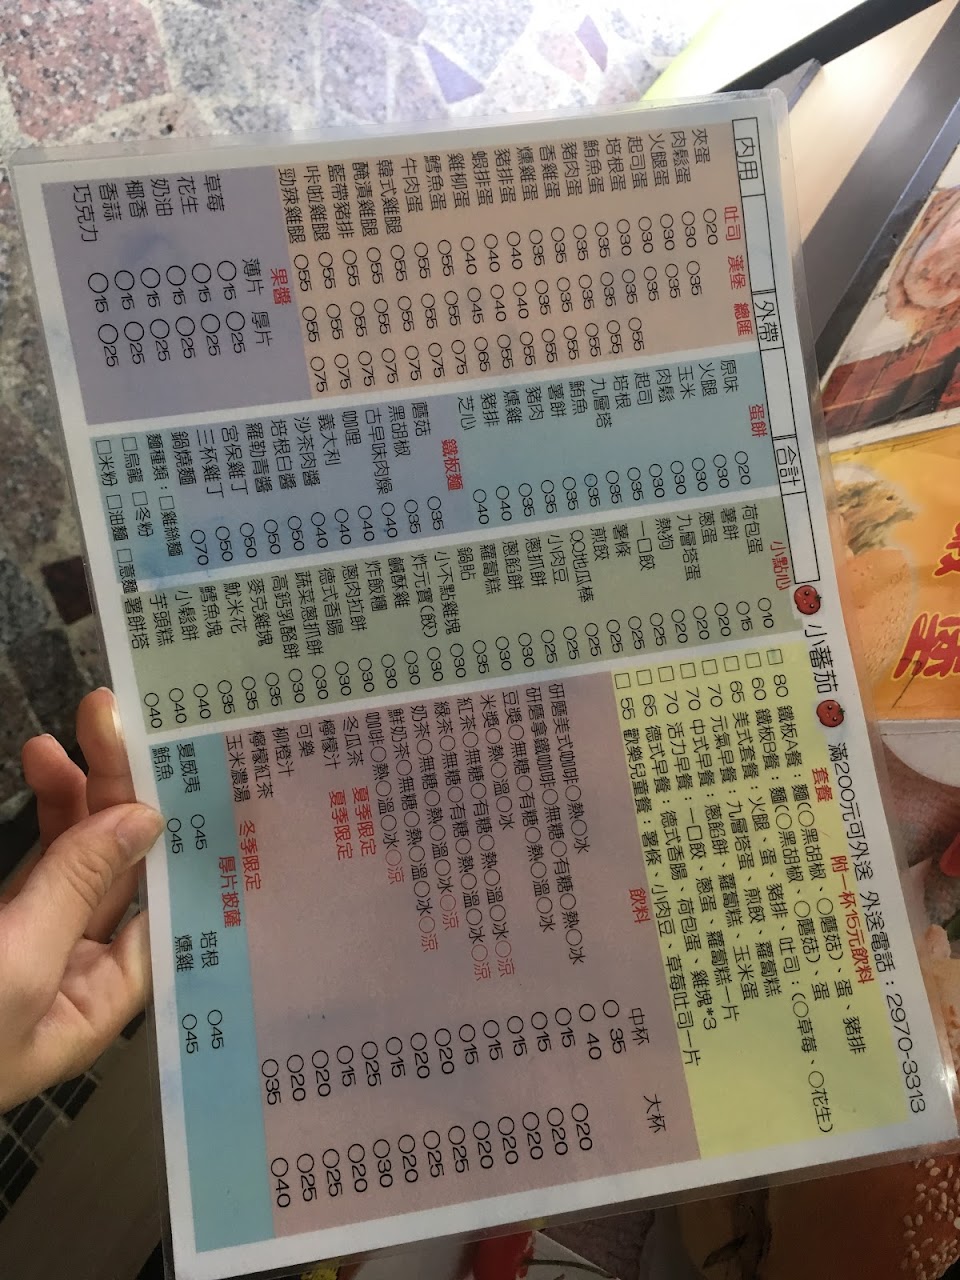 內用 外帶 合計
小蕃茄 滿200元可外送 外送電話：2970-3313
吐司 漢堡 總匯
夾蛋 ○20
肉鬆蛋 ○30 ○35
火腿蛋 ○30 ○35
起司蛋 ○30 ○35 ○55
培根蛋 ○30 ○35 ○55
鮪魚蛋 ○35 ○35 ○55
豬肉蛋 ○35 ○35 ○55
香雞蛋 ○35 ○35 ○55
燻雞蛋 ○35 ○35 ○55
豬排蛋 ○40 ○40 ○55
蝦排蛋 ○40 ○40 ○55
雞柳蛋 ○40 ○45 ○65
鱈魚蛋 ○55 ○55 ○75
牛肉蛋 ○55 ○55 ○75
韓式雞腿 ○55 ○55 ○75
醃漬雞腿 ○55 ○55 ○75
藍帶豬排 ○55 ○55 ○75
咔啦雞腿 ○55 ○55 ○75
勁辣雞腿 ○55 ○55 ○75
果醬 薄片 厚片
草莓 ○15 ○25
花生 ○15 ○25
奶油 ○15 ○25
椰香 ○15 ○25
香蒜 ○15 ○25
巧克力 ○15 ○25
蛋餅
原味 ○20
火腿 ○30
玉米 ○30
肉鬆 ○30
起司 ○30
培根 ○35
九層塔 ○35
鮪魚 ○35
薯餅 ○35
豬肉 ○35
燻雞 ○35
豬排 ○40
芝心 ○40
鐵板麵
蘑菇 ○35
黑胡椒 ○35
古早味肉燥 ○40
咖哩 ○40
義大利 ○40
沙茶肉醬 ○40
培根白醬 ○50
羅勒青醬 ○50
宮保雞丁 ○50
三杯雞丁 ○50
鍋燒麵 ○70
麵種類：□雞絲麵
□烏龍 □冬粉 □意麵
□米粉 □油麵
小點心
荷包蛋 ○10
薯餅 ○15
蔥蛋 ○20
九層塔蛋 ○20
熱狗 ○20
一口餃 ○25
薯條 ○25
煎餃 ○25
QQ地瓜棒 ○25
小肉豆 ○25
蔥抓餅 ○25
蔥餡餅 ○30
蘿蔔糕 ○30
鍋貼 ○35
小不點雞塊 ○30
炸元寶(餃) ○30
鹹酥雞 ○30
炸飯糰 ○30
蔥肉拉餅 ○30
德式香腸 ○30
蔬菜蔥抓餅 ○30
高鈣乳酪餅 ○30
麥克雞塊 ○35
魷米花 ○35
鱈魚塊 ○35
小鬆餅 ○40
芋頭糕 ○40
薯餅塔 ○40
套餐 附一杯15元飲料
□ 80 鐵板A餐：麵(○黑胡椒、○蘑菇)、蛋、豬排
□ 60 鐵板B餐：麵(○黑胡椒、○蘑菇)、蛋
□ 65 美式套餐：火腿、蛋、豬排、吐司：(○草莓、○花生)
□ 70 元氣早餐：九層塔蛋、煎餃、蘿蔔糕
□ 70 中式早餐：蔥餡餅、蘿蔔糕、玉米蛋
□ 70 活力早餐：一口餃、蔥蛋、蘿蔔糕一片
□ 65 德式早餐：德式香腸、荷包蛋、雞塊*3
□ 55 歡樂兒童餐：薯條、小肉豆、草莓吐司一片
飲料 中杯 大杯
研磨美式咖啡○熱○冰 ○ 35
研磨拿鐵咖啡○無糖○有糖○熱○冰 ○ 40
豆漿○無糖○有糖○熱○溫○冰 ○15 ○20
米漿○熱○溫○冰 ○15 ○20
紅茶○無糖○有糖○熱○溫○冰○涼 ○15 ○20
綠茶○無糖○有糖○熱○溫○冰○涼 ○15 ○20
奶茶○無糖○熱○溫○冰○涼 ○15 ○20
鮮奶茶○無糖○熱○溫○冰 ○20 ○25
咖啡○熱○溫○冰○涼 ○20 ○25
冬瓜茶 夏季限定 ○15 ○20
檸檬汁 夏季限定 ○25 ○30
可樂 ○15 ○20
柳橙汁 ○20 ○25
檸檬紅茶 ○20 ○25
玉米濃湯 冬季限定 ○35 ○40
厚片披薩
夏威夷 ○45 培根 ○45
鮪魚 ○45 燻雞 ○45